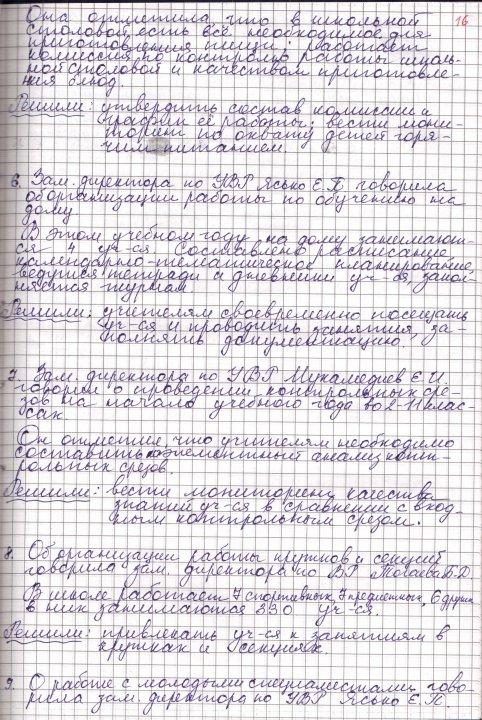 16
Она отметила, что в школьной
столовой есть все необходимое для
приготовления пищи; работает
комиссия по контролю работы школь-
ной столовой и качеством приготовле-
ния блюд.
Решили: утвердить состав комиссии и
график её работы; вести мони-
торинг по охвату детей горя-
чим питанием.
6. Зам. директора по УВР Ясько Е.П. говорила
об организации работы по обучению на
дому
В этом учебном году на дому занимают-
ся 4 уч-ся. Составлено расписание,
календарно-тематическое планирование,
ведутся тетради и дневники уч-ся, запол-
няется журнал.
Решили: учителям своевременно посещать
уч-ся и проводить занятия, за-
полнять документацию.
7. Зам. директора по УВР Мухамедиев Е.И.
говорил о проведении контрольных сре-
зов на начало учебного года во 2-11 клас-
сах
Он отметил, что учителям необходимо
составить поэлементный анализ конт-
рольных срезов.
Решили: вести мониторинг качества
знаний уч-ся в сравнении с вход-
ным контрольным срезом.
8. Об организации работы кружков и секций
говорила зам. директора по ВР Б.Д.
В школе работает 7 спортивных, 7 предметных, 6 других
в них занимаются 330 уч-ся.
Решили: привлекать уч-ся к занятиям в
кружках и секциях.
9. О работе с молодыми специалистами гово-
рила зам. директора по УВР Ясько Е.П.